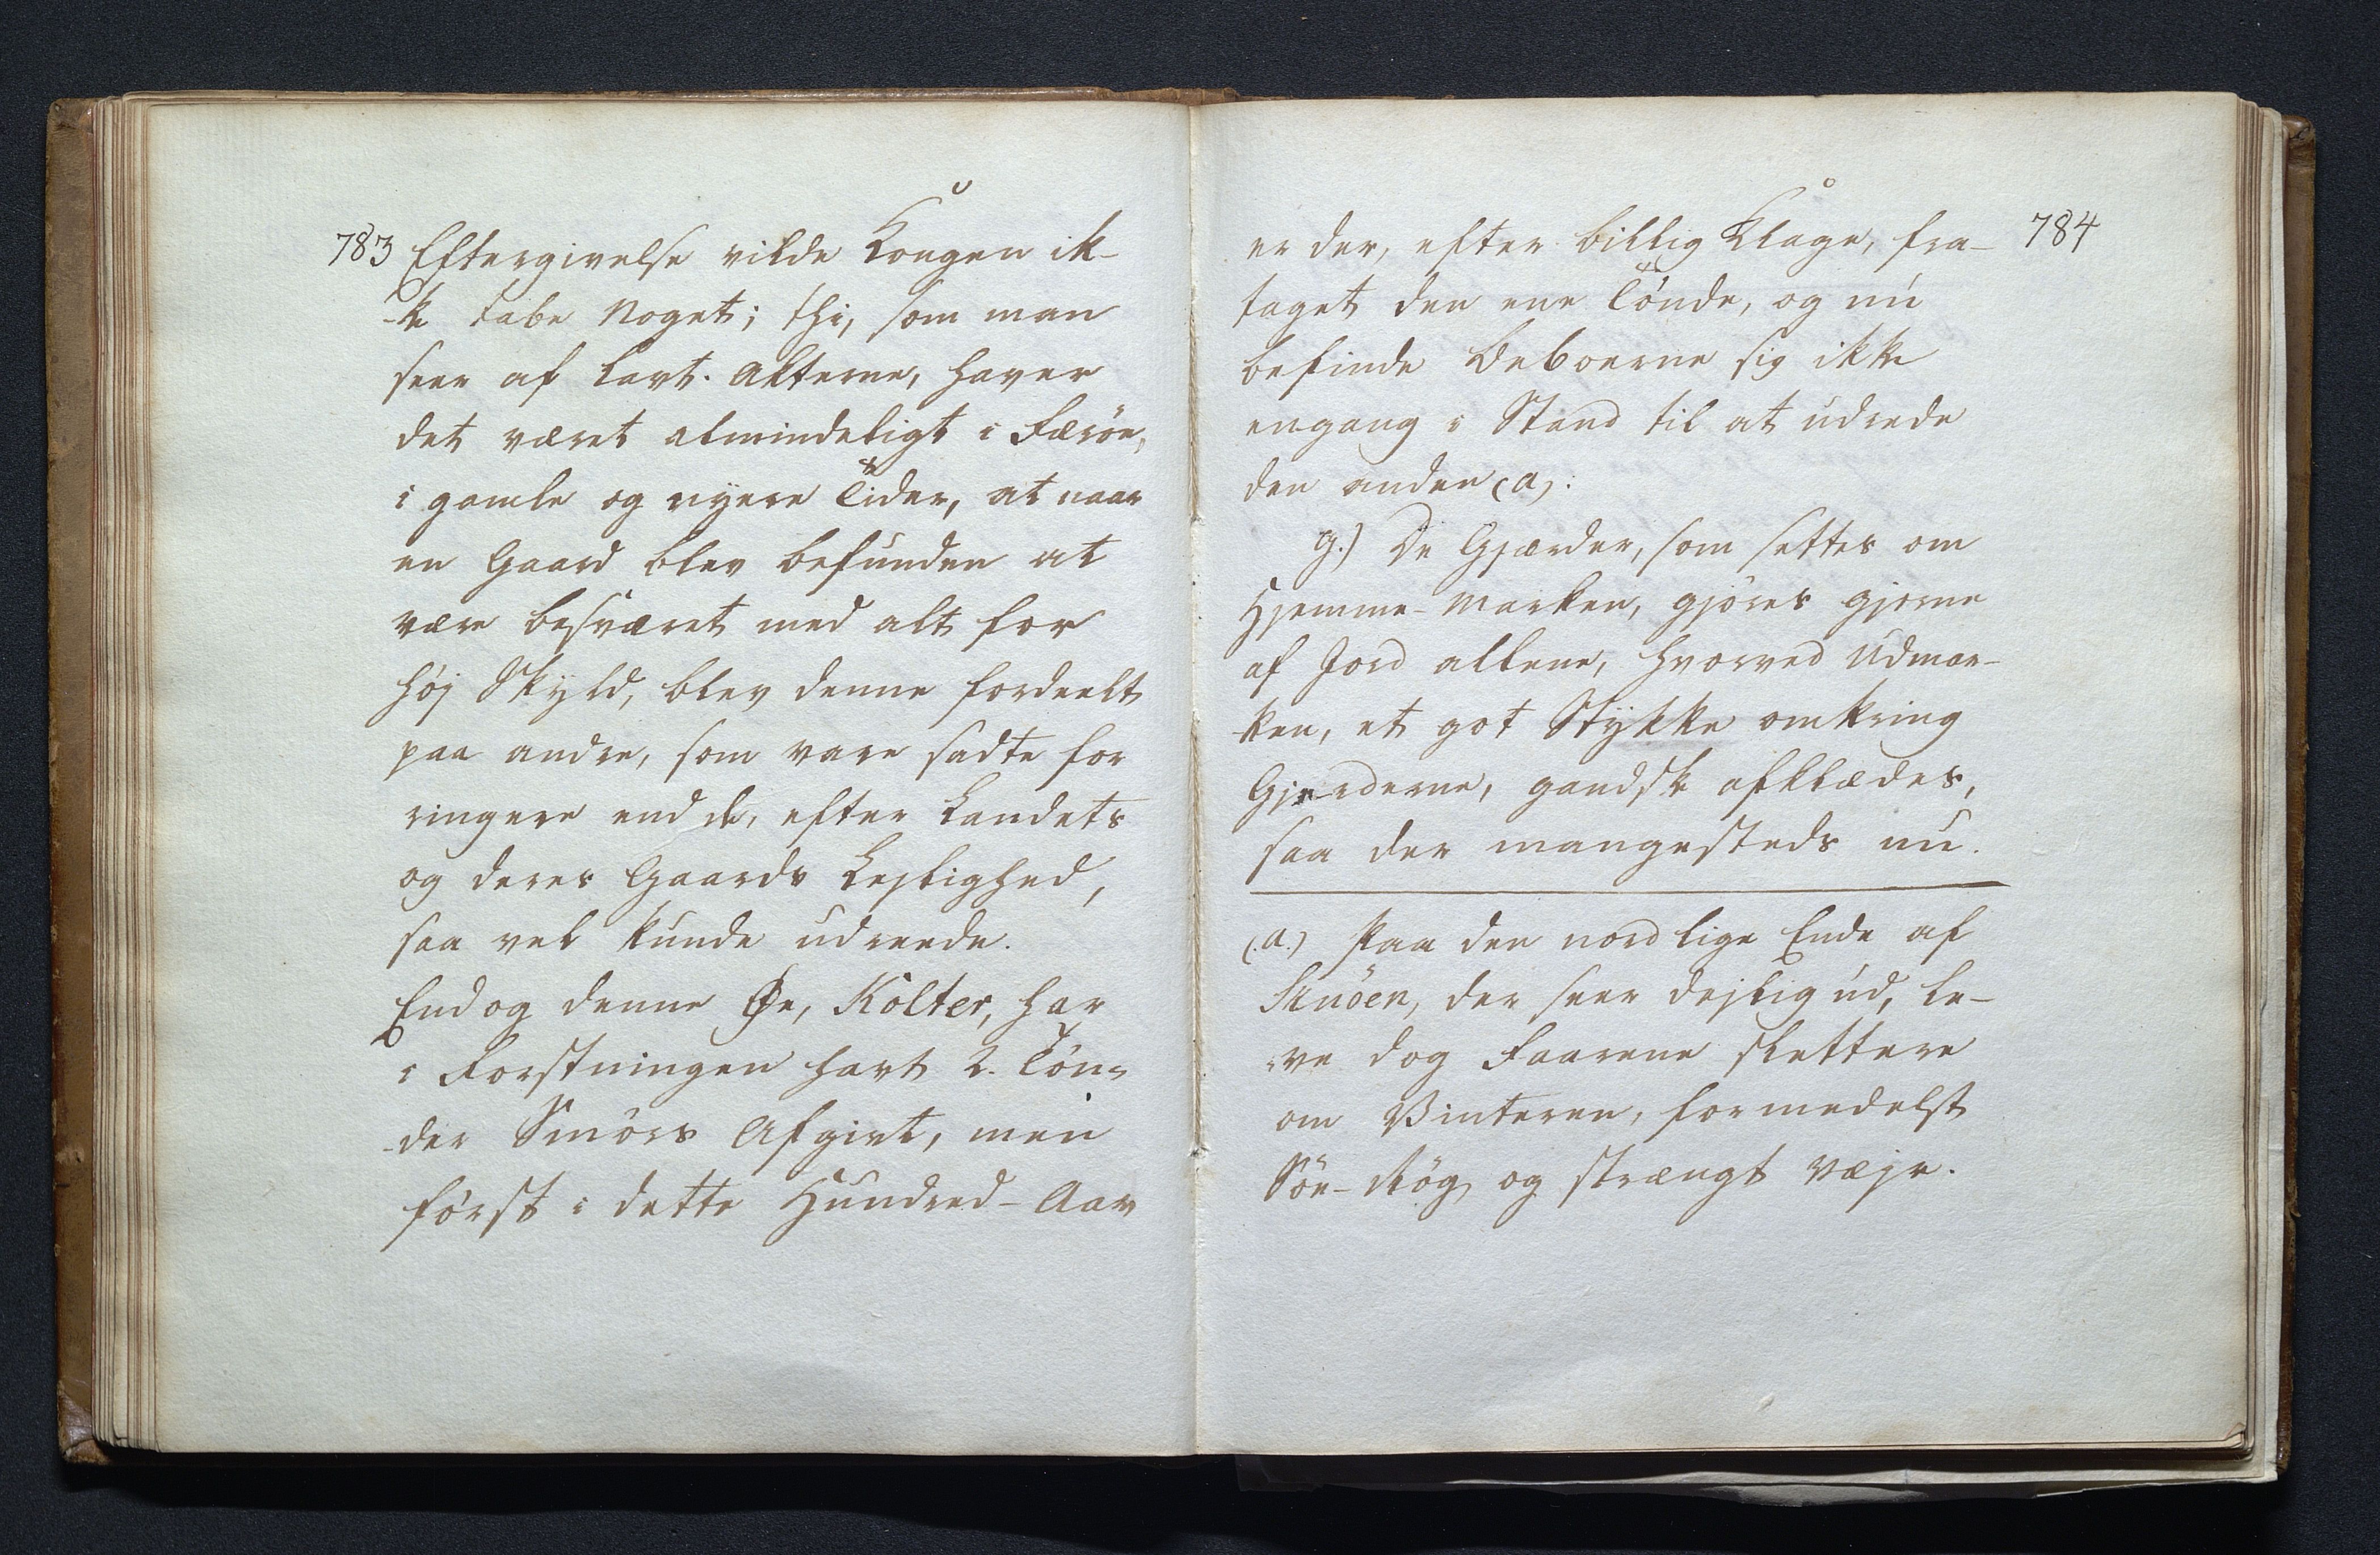 783
Eftergivelse vilde Kongen ik-
-ke tabe Noget; thi, som man
seer af Lavt. Akterne, haver
det været almindeligt i Færöe,
i gamle og nyere Tider, at naar
en Gaard blev befunden at
være besværet med alt for
höj Skyld, blev denne fordeelt
paa andre, som vare sadte for
ringere end de, efter Landets
og deres Gaards Lejlighed,
saa vel kunde udreede.
Endog denne Øe, Kolter, har
i Forstningen havt 2. Tön-
-der Smörs Afgivt, men
först i dette Hundred-Aar
784
er der, efter billig Klage, fra-
taget den ene Tönde, og nu
befinde Beboerne sig ikke
engang i Stand til at udrede
den anden (a).
g.) De Gjærder, som settes om
Hjemme-Marken, gjöres gjerne
af Jord allene, hvorved Udmar-
-ken, et got Stykke omkring
Gjerderne, gandske afklædes,
saa der mangesteds nu.
(a.) Paa den nordlige Ende af
Skuöen, der seer dejlig ud, le-
-ve dog Faarene slettere
om Vinteren, formedelst
Söe-Rög og strængt Vejr.